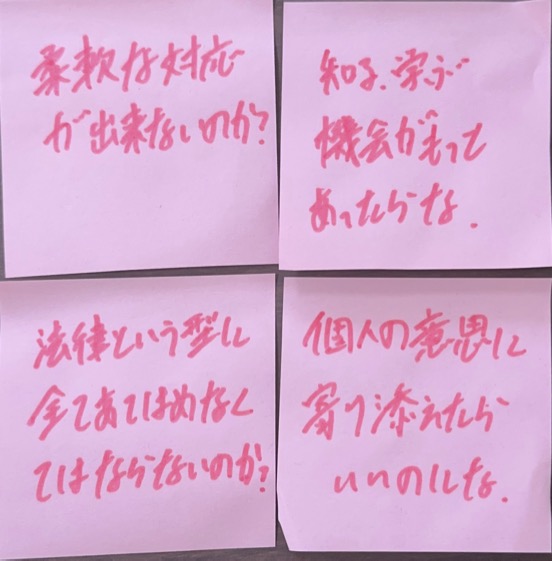 柔軟な対応
が出来ないのか?
知る、学ぶ
機会がもっと
あったらな.
法律という型に
全てあてはめなく
てはならないのか?
個人の意思に
寄り添えたら
いいのにな.